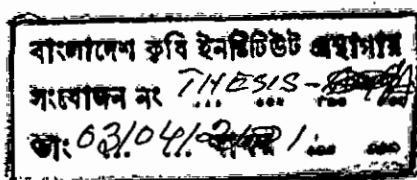 বাংলাদেশ কৃষি ইনষ্টিটিউট গ্রন্থাগার
সংযোজন নং THESIS-
তাং 03/04/